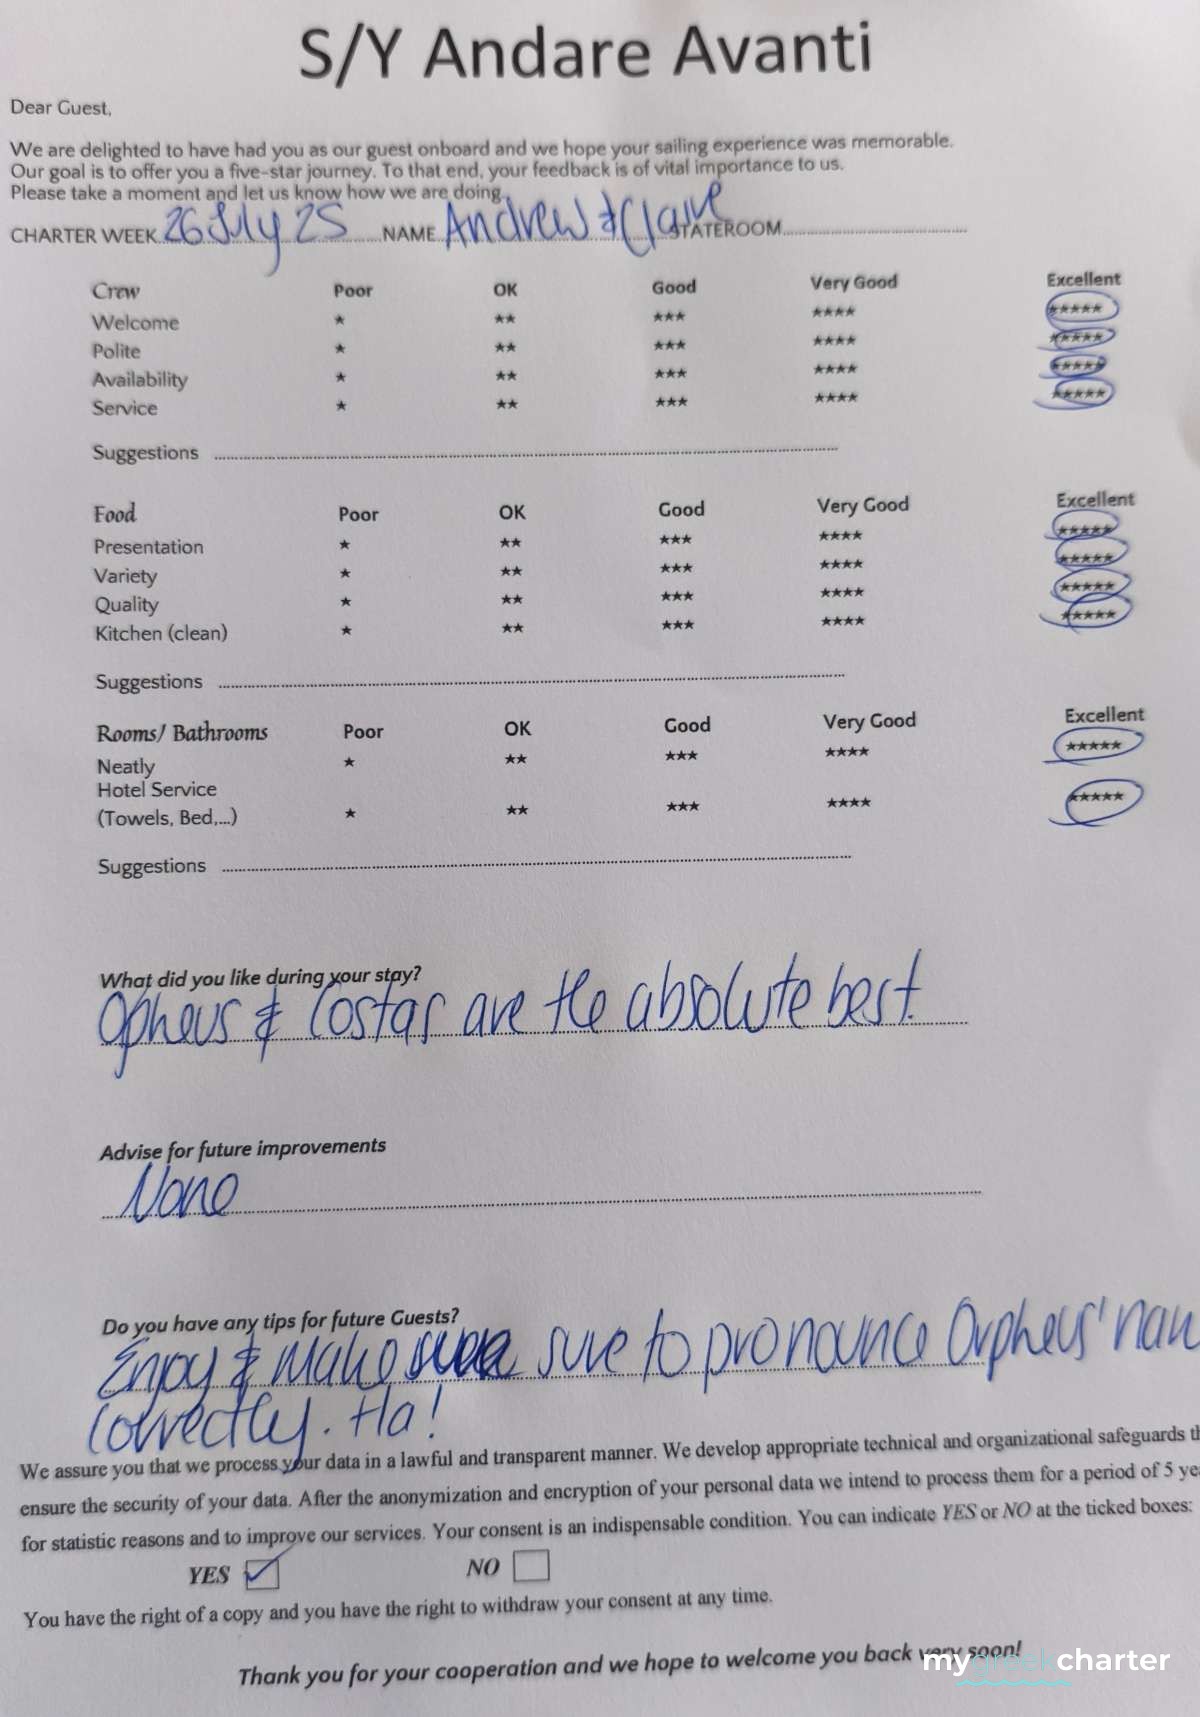 S/Y Andare Avanti
Dear Guest,
We are delighted to have had you as our guest onboard and we hope your sailing experience was memorable.
Our goal is to offer you a five-star journey. To that end, your feedback is of vital importance to us.
Please take a moment and let us know how we are doing.
CHARTER WEEK 26 July 25 NAME Andrew & Claire STATEROOM
Crew Poor OK Good Very Good Excellent
Welcome ★ ★★ ★★★ ★★★★ ★★★★★
Polite ★ ★★ ★★★ ★★★★ ★★★★★
Availability ★ ★★ ★★★ ★★★★ ★★★★★
Service ★ ★★ ★★★ ★★★★ ★★★★★
Suggestions
Food Poor OK Good Very Good Excellent
Presentation ★ ★★ ★★★ ★★★★ ★★★★★
Variety ★ ★★ ★★★ ★★★★ ★★★★★
Quality ★ ★★ ★★★ ★★★★ ★★★★★
Kitchen (clean) ★ ★★ ★★★ ★★★★ ★★★★★
Suggestions
Rooms/ Bathrooms Poor OK Good Very Good Excellent
Neatly ★ ★★ ★★★ ★★★★ ★★★★★
Hotel Service
(Towels, Bed,...) ★ ★★ ★★★ ★★★★ ★★★★★
Suggestions
What did you like during your stay?
Opheus & Costas are the absolute best.
Advise for future improvements
None
Do you have any tips for future Guests?
Enjoy & make sure to pronounce Orpheus' nam
correctly. Ha!
We assure you that we process your data in a lawful and transparent manner. We develop appropriate technical and organizational safeguards th
ensure the security of your data. After the anonymization and encryption of your personal data we intend to process them for a period of 5 ye
for statistic reasons and to improve our services. Your consent is an indispensable condition. You can indicate YES or NO at the ticked boxes:
YES NO
You have the right of a copy and you have the right to withdraw your consent at any time.
Thank you for your cooperation and we hope to welcome you back very soon!
mygreekcharter